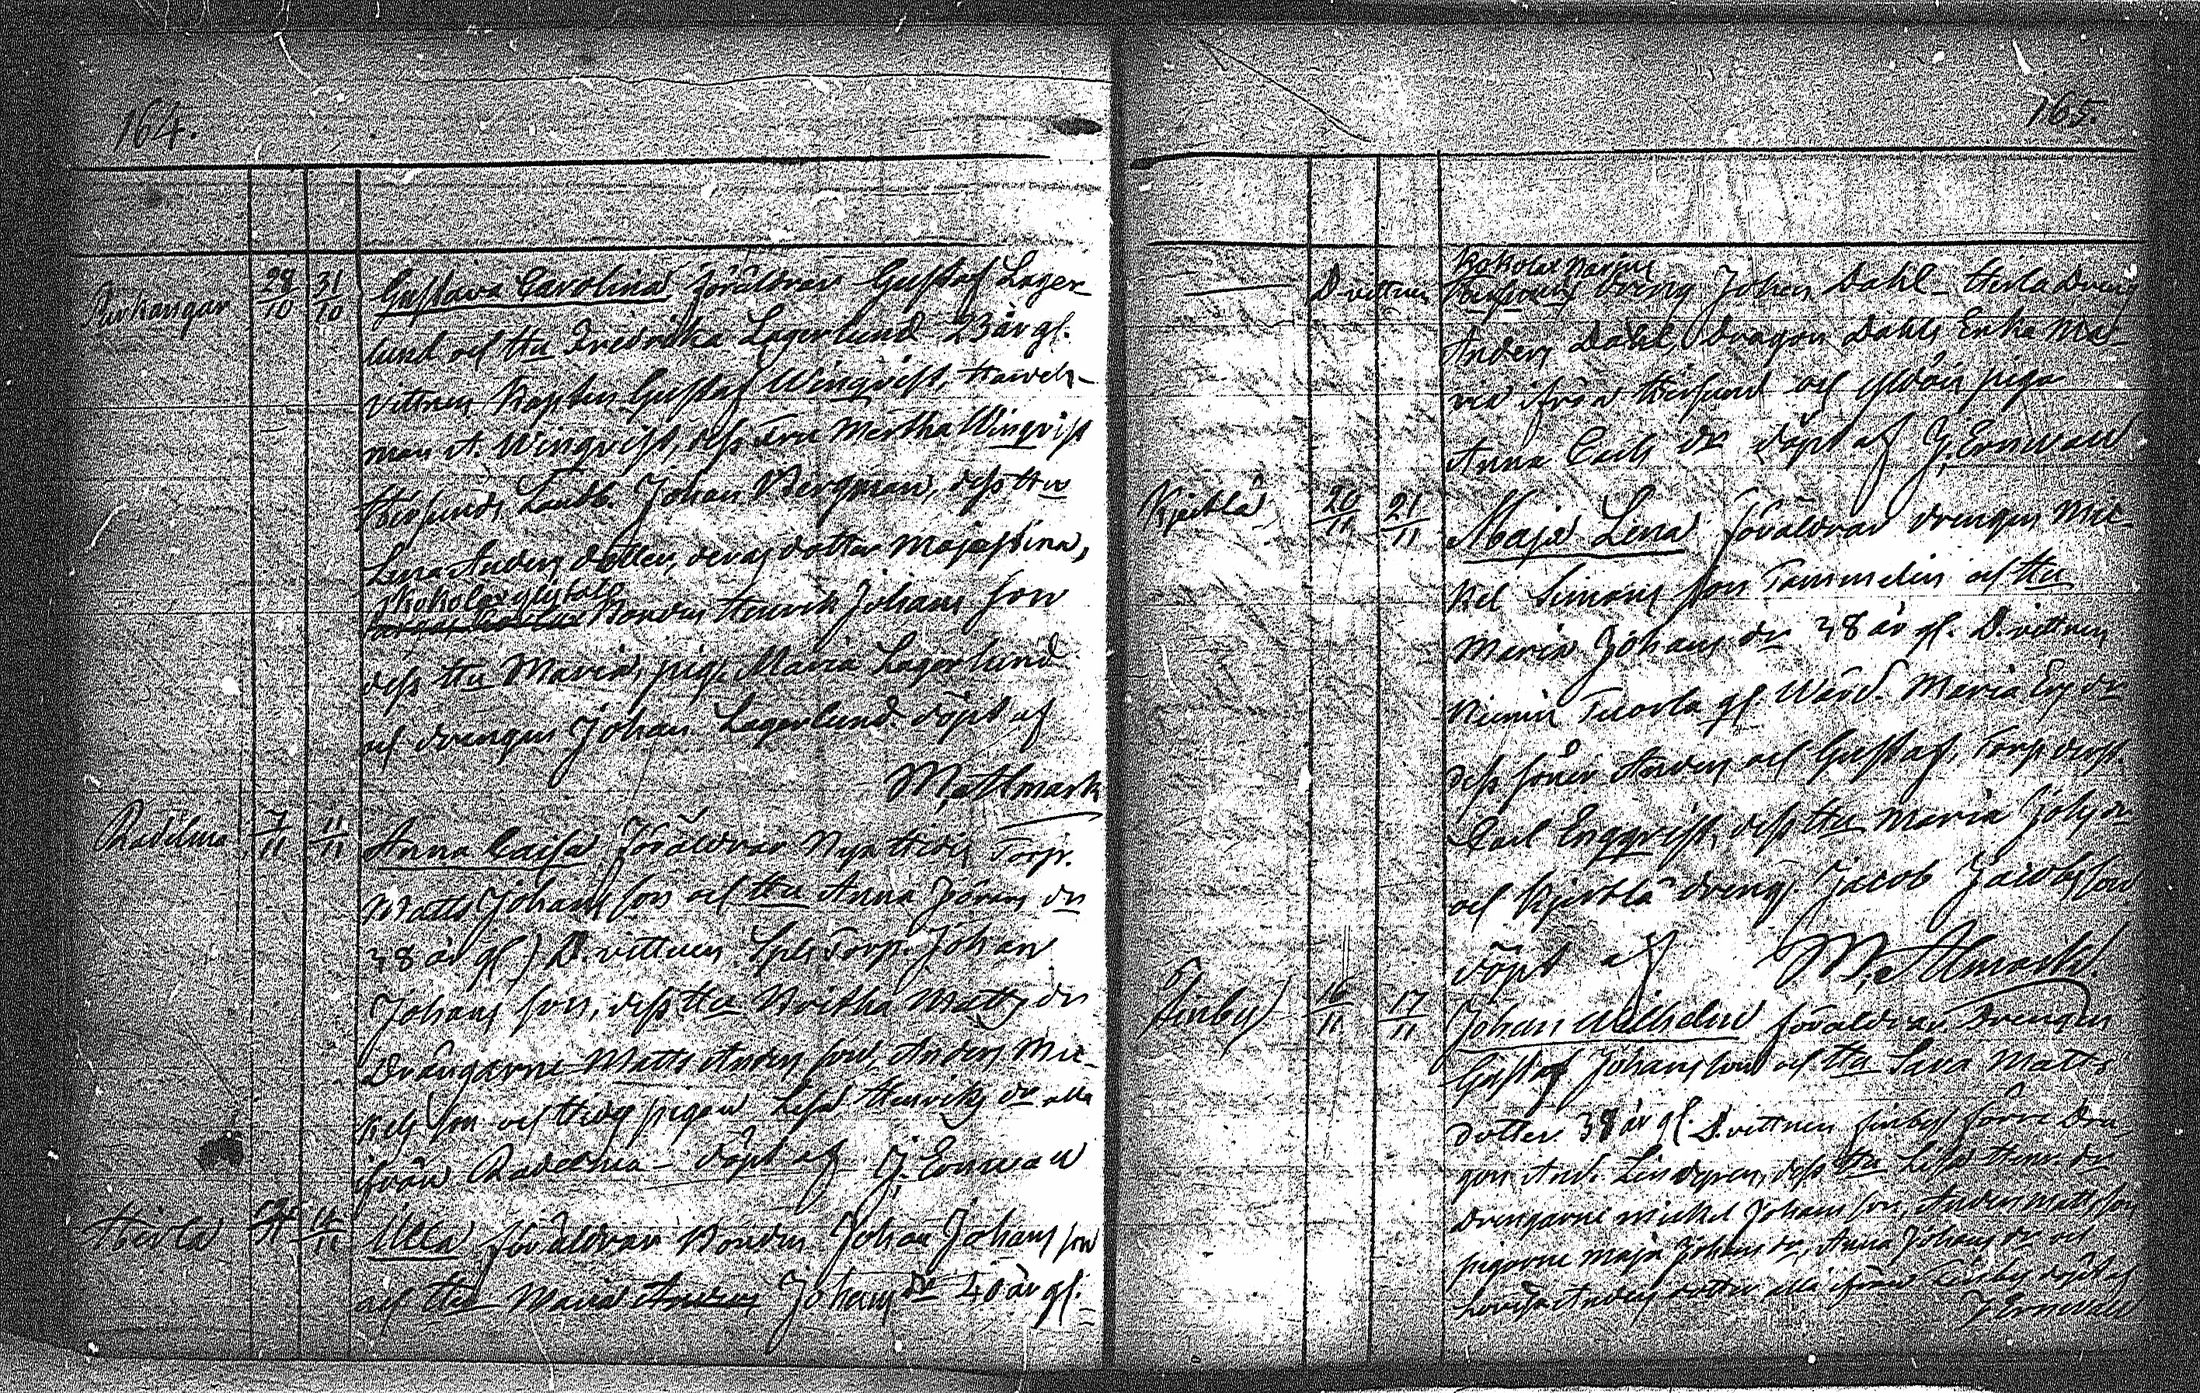 164.
28/10 31/10 Gustava Carolina föräldrar Gustaf Lager-
lund och Hu Fredrika Lagerlund 23 år gl.
vittnen Kapten Gustaf Winqvist, Handels-
man A. Winqvist, dess Fru Mertha Winqvist
Landb. Johan Bergman, dess Hu
Lena Anders dotter, deras dotter Maja Stina,
Bonden Henrik Johans son
dess Hu Maria, pig. Maria Lagerlund
och drengen Johan Lagerlund döpt af
M. Almark
Radelma 7/11 11/11 Anna Caisa Föräldrar Torp.
Matts Johans son och Hu Anna Jörans dr
38 år gl) D. vittnen Torp. Johan
Johans son, dess Hu Britha Matts dr
Drängarne Matts Anders son, Anders Mic-
kels son och pigan Lisa Henriks dr alla
ifrån Radelma - döpt af J. Ernwall
Heisla 14/11 Ulla föräldrar Bonden Johan Johans son
och Hu Maria Johans dr 40 år gl.
165.
D vittnen Dreng Johan Dahl Dreng
Anders Dahl, Dragon Dahls Enka Ma-
ria ifrån och piga
Anna Carls dr döpt af J. Ernwall
20/11 21/11 Maja Lena föräldrar drengen Mic-
kel Simons son Tammelin och Hu
Maria Johans dr 38 år gl. D. vittnen
gl. Wärd. Maria Ers dr
dess söner Anders och Gustaf, Torp. drgs.
Carl Engqvist, dess Hu Maria Johs dr
och drengs Jacob Jacobs son
döpt af M. Almark.
Finby 16/11 17/11 Johan Wilhelm föräldrar Drengen
Gustaf Johans son och Hu Sara Matts
dotter 38 år gl. D. vittnen finby förre Dra-
gon And. Lindgren, dess Hu Lisa Henr. dr
Drengarne Michel Johans son, Anders Matts son
pigorne Maja Johans dr, Anna Johans dr och
Lovisa Anders dotter alla ifrån Finby döpt af
J Ernwall